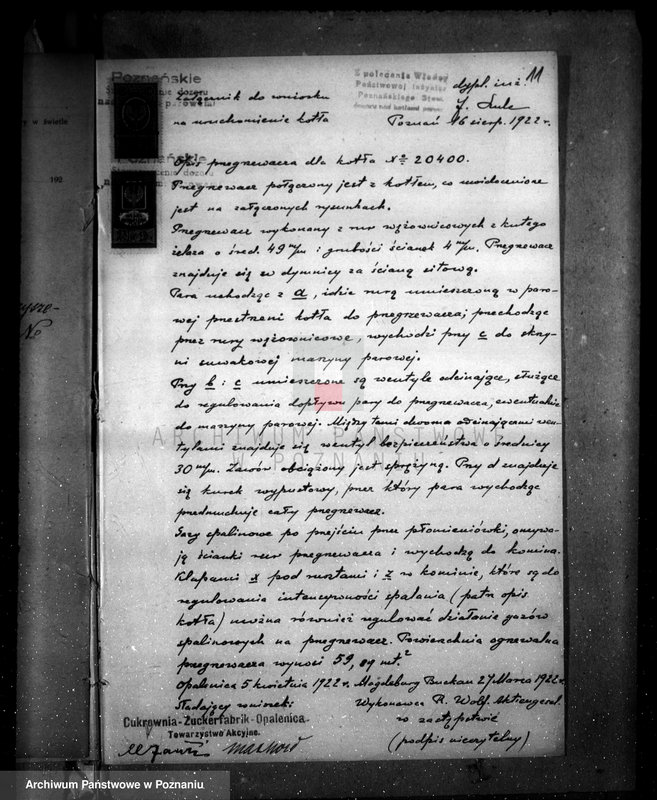 11
Poznańskie
Z polecenia Władzy
Państwowej Inżynier
Poznańskiego Stow.
dozoru nad kotłami parow.
dypl. inż.
Załącznik do wniosku
na uruchomienie kotła
Poznań 16 sierp. 1922 r.
Opis pregrewacza dla kotła № 20400.
Pregrewacz połączony jest z kotłem, co uwidocznione
jest na załączonych rysunkach.
Pregrewacz wykonany z rur wężownicowych z kutego
żelaza o śred. 49 m/m i grubości ścianek 4 m/m. Pregrewacz
znajduje się w dymnicy za ścianą sitową.
Para uchodząc z a, idzie rurą umieszczoną w paro-
wej przestrzeni kotła do pregrewacza; przechodząc
przez rury wężownicowe, wychodzi przy c do skrzy-
ni suwakowej maszyny parowej.
Przy b i c umieszczone są wentyle odcinające, służące
do regulowania dopływu pary do pregrewacza, ewentualnie
do maszyny parowej. Między temi dwoma odcinającemi wen-
tylami znajduje się wentyl bezpieczeństwa o średnicy
30 m/m. Zawór obciążony jest sprężyną. Przy d znajduje
się kurek wypustowy, przez który para wychodząc
przedmuchuje cały pregrewacz.
Gazy spalinowe po przejściu przez płomieniówki, omywa-
ją ścianki rur pregrewacza i wychodzą do komina.
Klapami x pod rusztami i z w kominie, które są do
regulowania intensywności spalania (patrz opis
kotła) można również regulować działanie gazów
spalinowych na pregrewacz. Powierzchnia ogrzewalna
pregrewacza wynosi 59,09 mt.²
Opalenica 5 kwietnia 1922 r. Magdeburg Buckau 27 Marca 1922 r.
Składający wniosek:
Wykonawca R. Wolf Aktiengesel.
Cukrownia-Zuckerfabrik-Opalenica
Towarzystwo Akcyjne.
w zastępstwie
(podpis nieczytelny)
y w świetle
192
№
ARCHIWUM PAŃSTWOWE
W POZNANIU
Archiwum Państwowe w Poznaniu